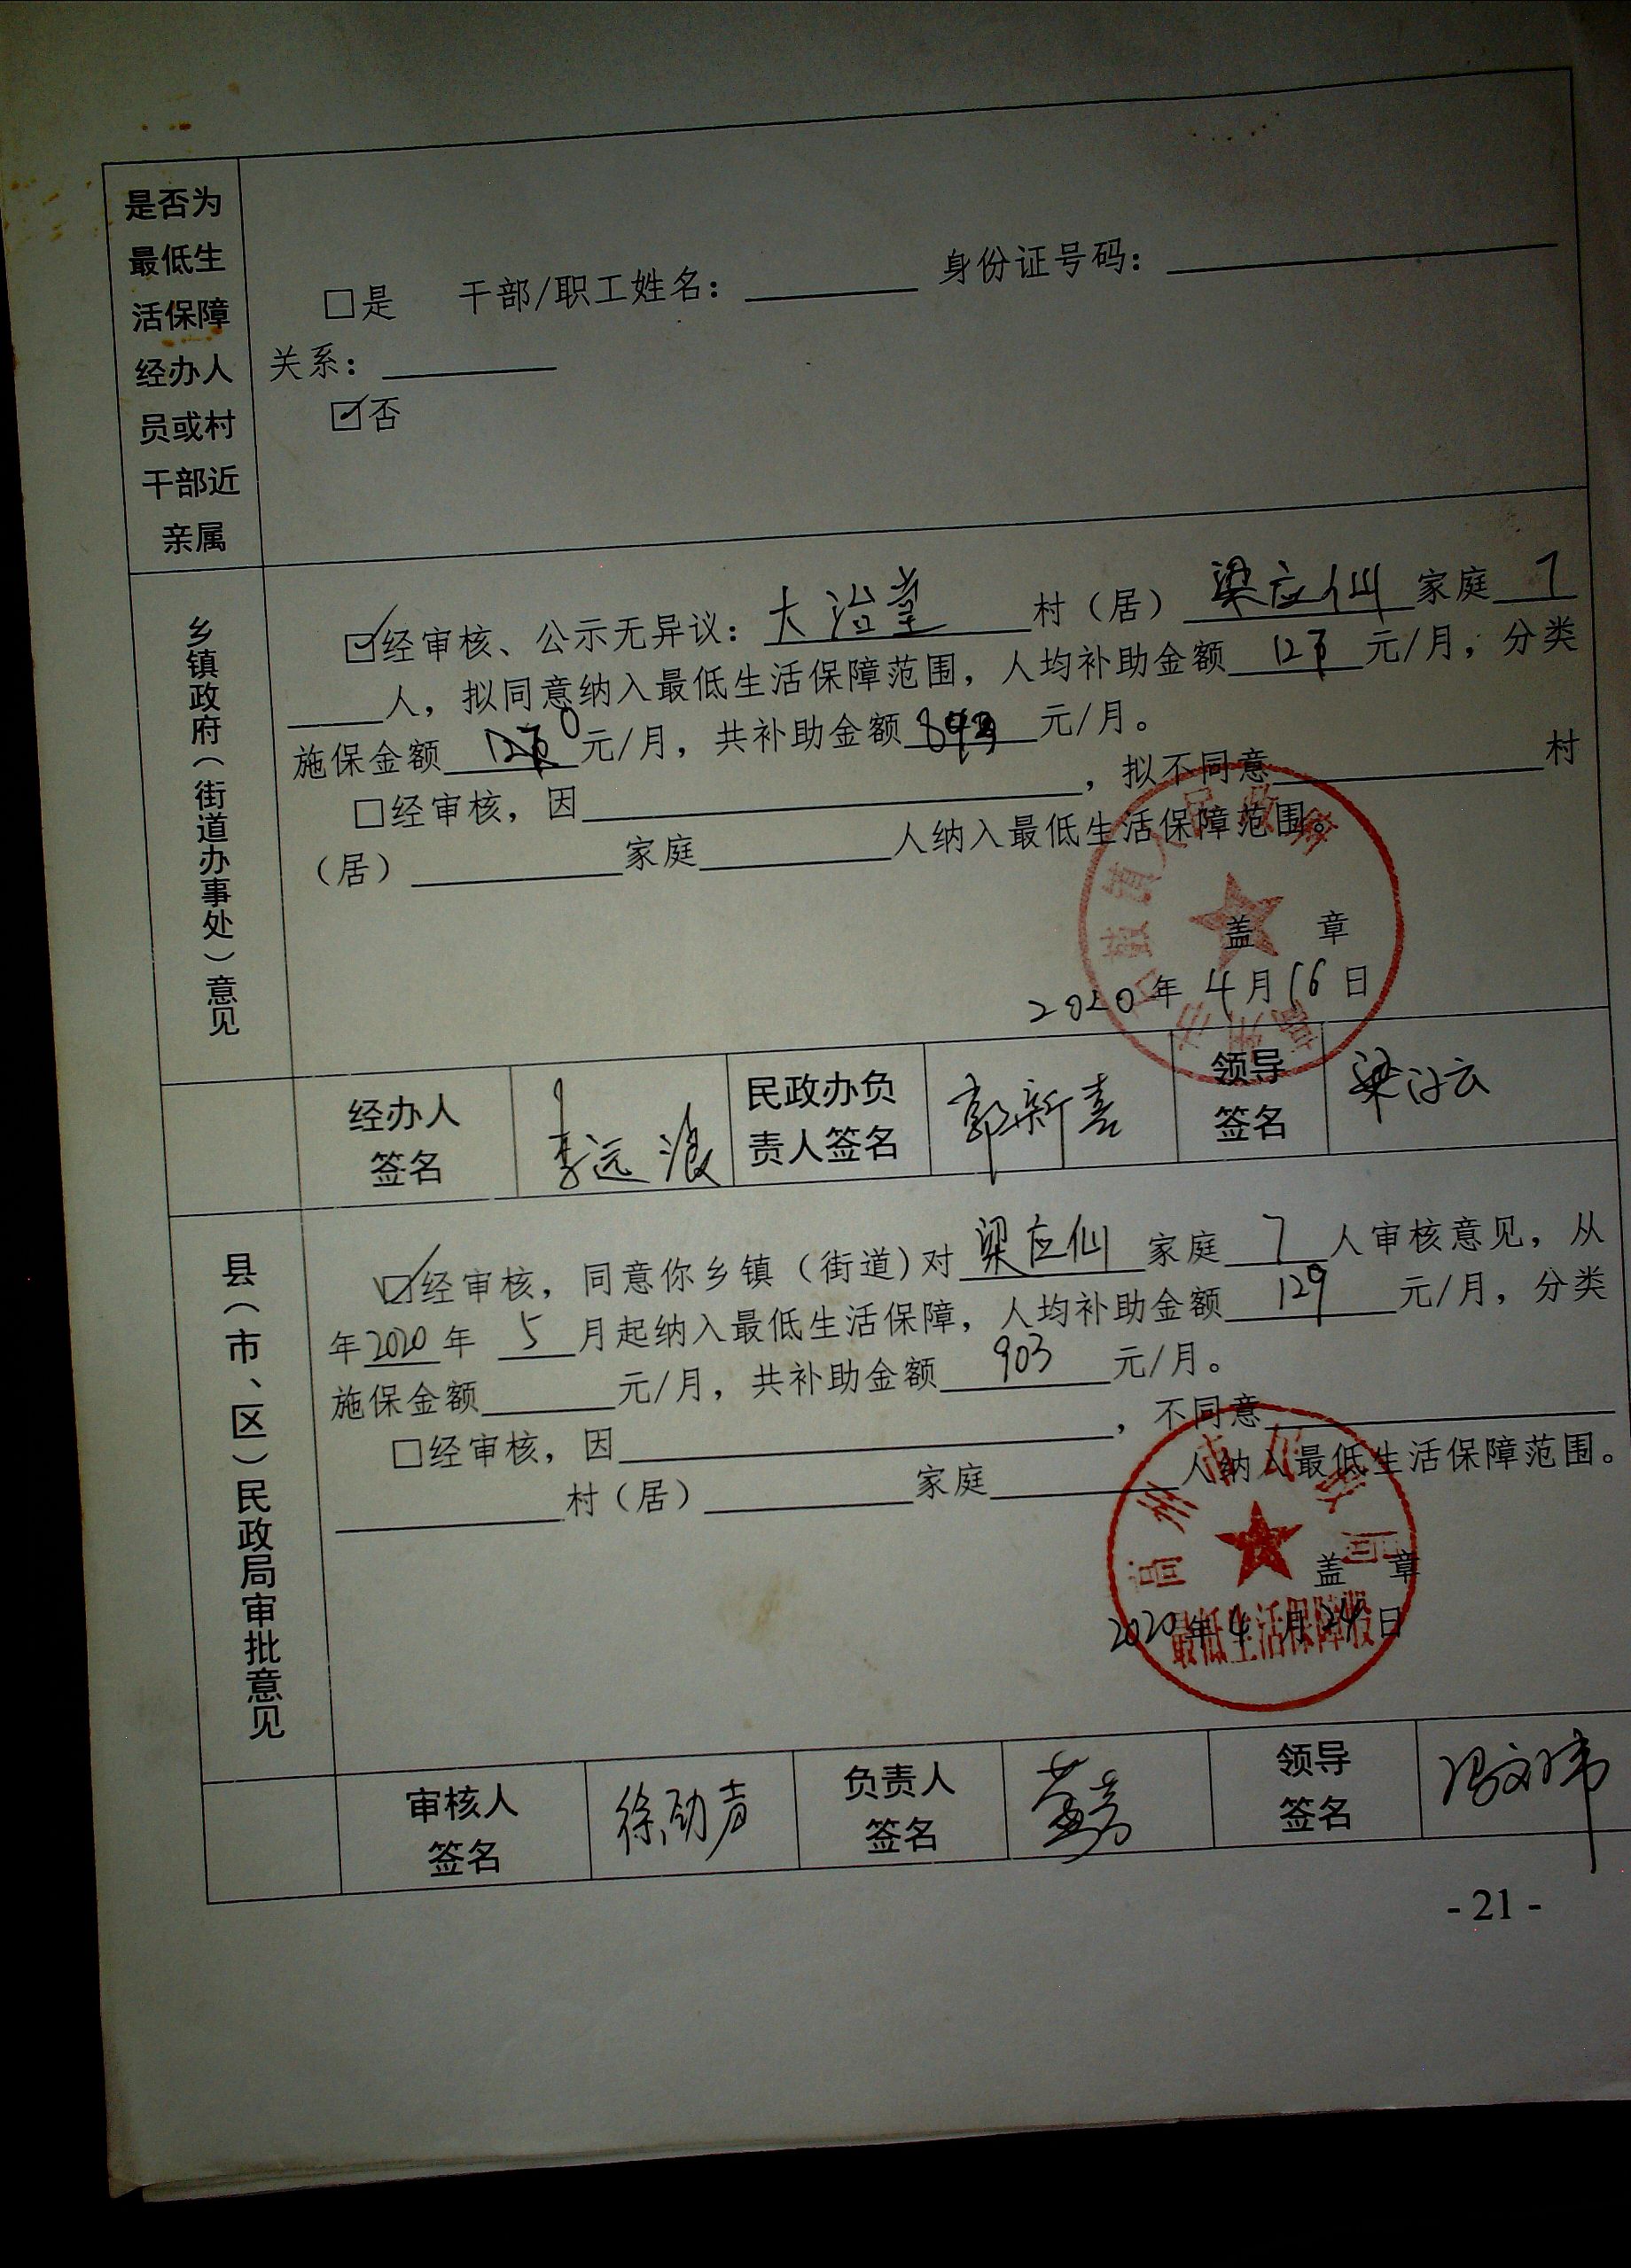 是否为
最低生
活保障
经办人
员或村
干部近
亲属
□是 干部/职工姓名：________ 身份证号码：________
关系：________
☑否
乡镇政府（街道办事处）意见
☑经审核、公示无异议：大治堂村（居）梁应仙家庭7
____人，拟同意纳入最低生活保障范围，人均补助金额 元/月，分类
施保金额 元/月，共补助金额 元/月。
□经审核，因________，拟不同意________村
（居）________家庭________人纳入最低生活保障范围。
盖 章
2020年4月16日
经办人
签名
李远浪
民政办负
责人签名
郭新喜
领导
签名
县（市、区）民政局审批意见
☑经审核，同意你乡镇（街道）对梁应仙家庭7人审核意见，从
年2020年5月起纳入最低生活保障，人均补助金额129元/月，分类
施保金额____元/月，共补助金额903元/月。
□经审核，因________，不同意________
________村（居）________家庭________人纳入最低生活保障范围。
高州市民政局
盖 章
最低生活保障股
2020年4月24日
审核人
签名
徐劲声
负责人
签名
领导
签名
- 21 -